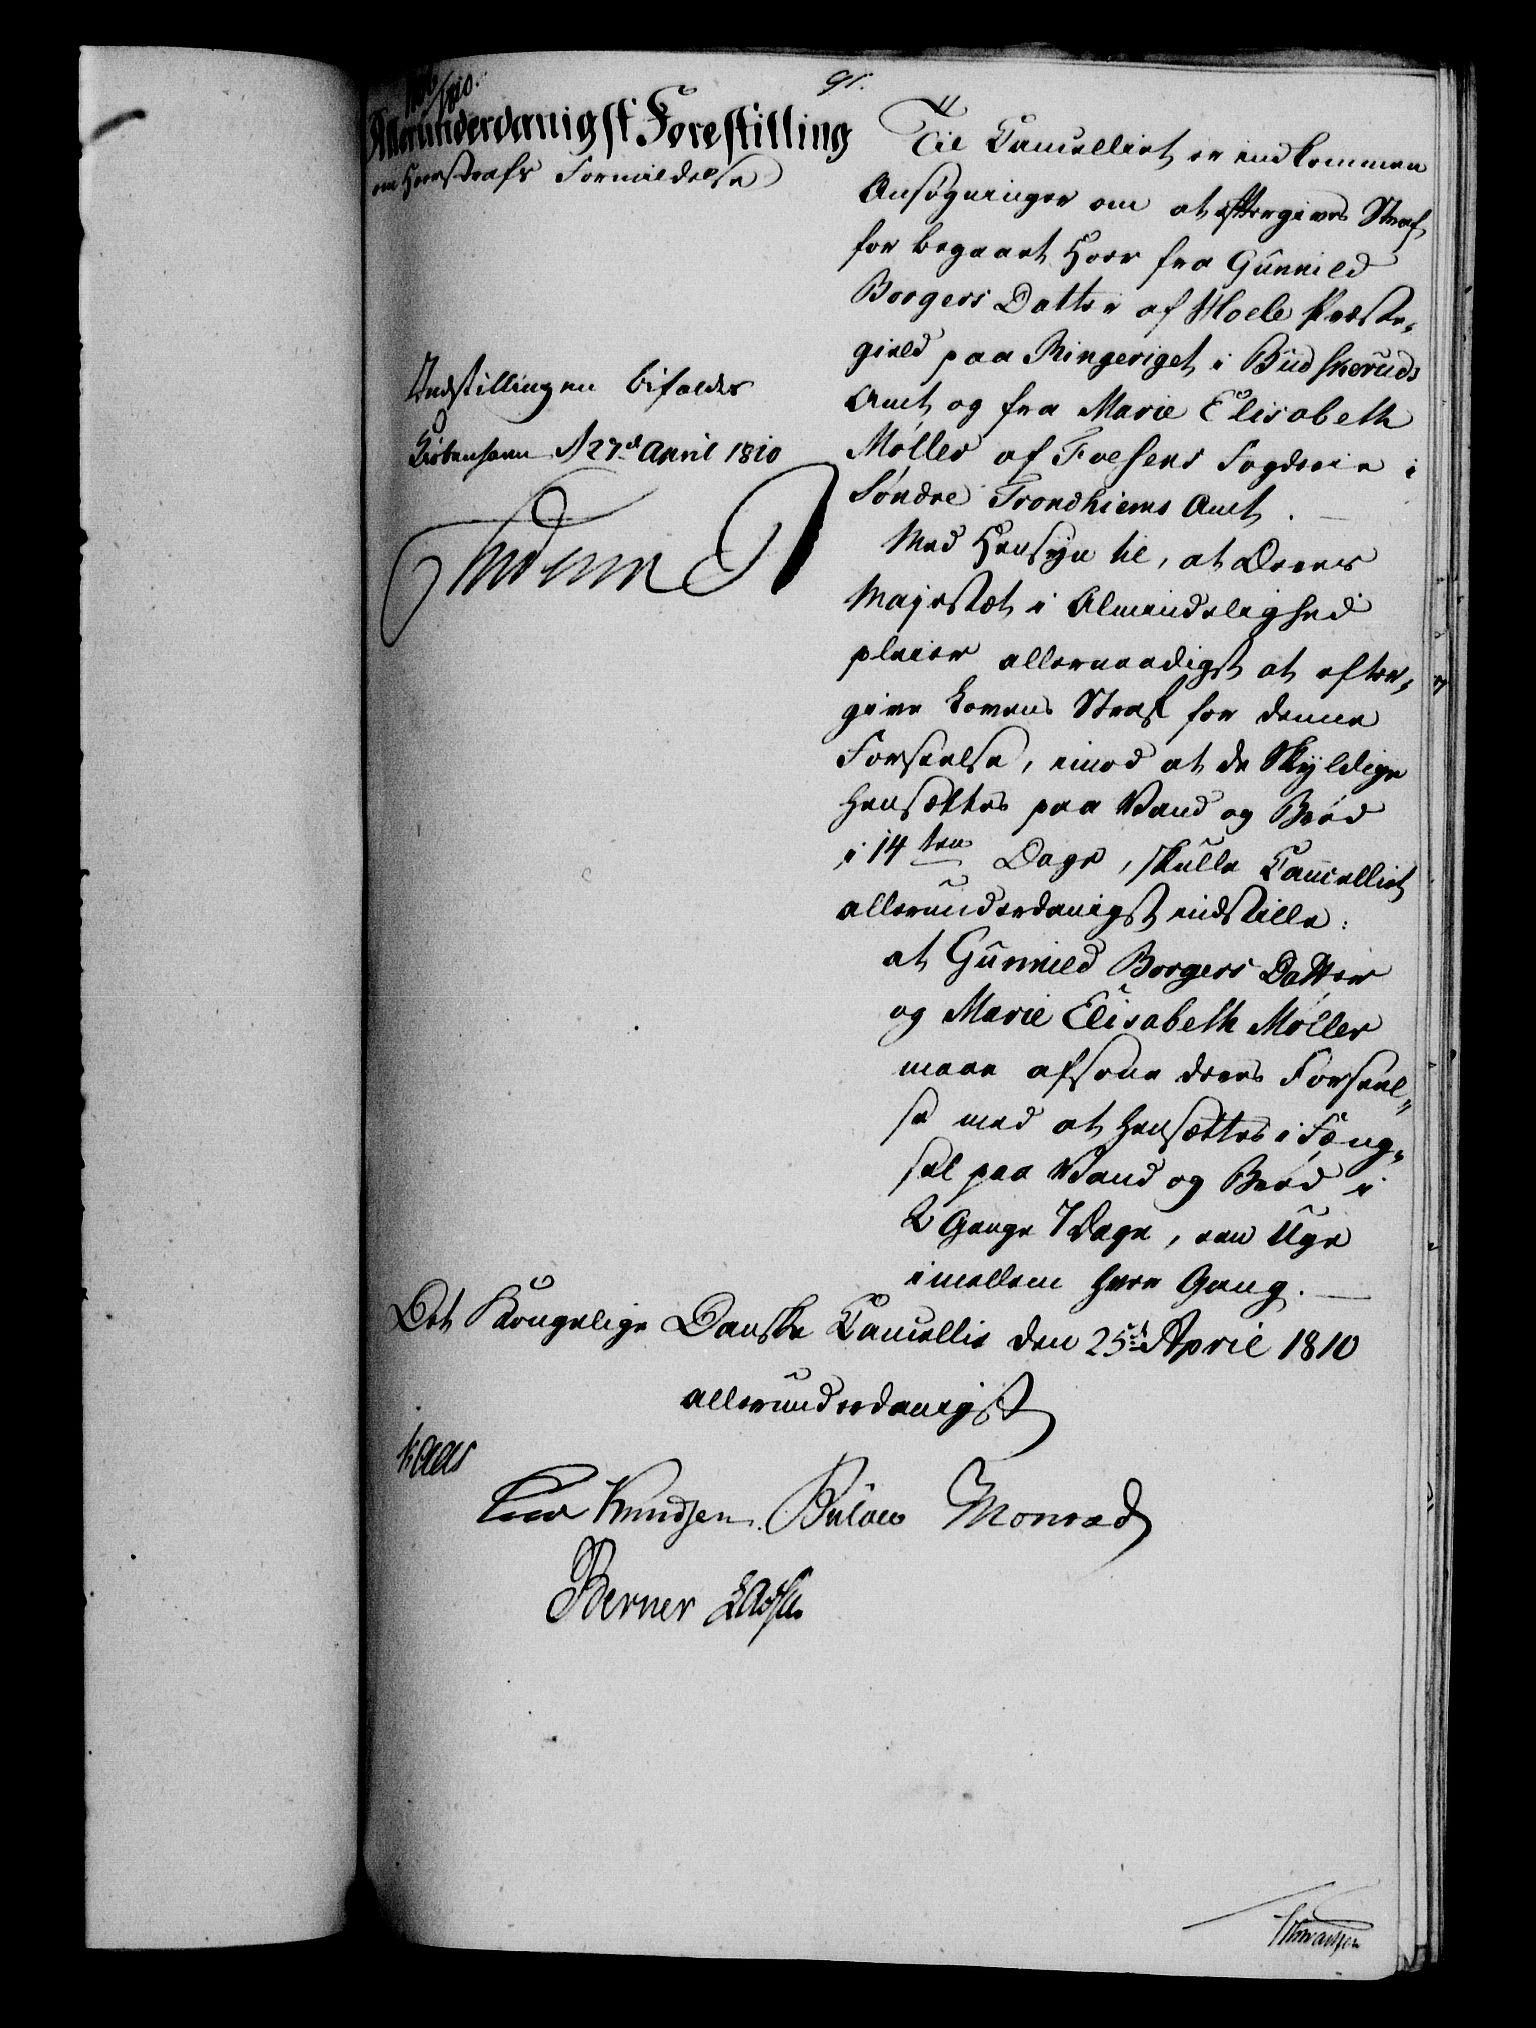 91.
Allerunderdanigst Forestilling
om Hoersstrafs Formildelse
Indstillingen bifaldes
Kiøbenhavn d 27d April 1810
Til Cancelliet er indkommen
Ansøgninger om at eftergives Straf
for begaaet Hoer fra Gunnild
Borgers Datter af Hoele Præste-
gield paa Ringeriget i Budskeruds
Amt og fra Marie Elisabeth
Møller af Foesens Fogderie i
Søndre Trondhiems Amt.
Med Hensyn til, at Deres
Majestæt i Almindelighed
pleier allernaadigst at efter-
give Lovens Straf for denne
Forseelse, imod at de Skyldige
hensættes paa Vand og Brød
i 14 ten Dage, skulle Cancelliet
allerunderdanigst indstille:
at Gunnild Borgers Datter
og Marie Elisabeth Møller
maae afsone deres Forseel-
se med at hensættes i Fæng-
sel paa Vand og Brød i
2 Gange 7 Dage, een Uge
imellem hver Gang.
Det Kongelige Danske Cancellie den 25d April 1810
allerunderdanigst
Kaas
Knudsen. Bülow Monrad
Berner Lassen